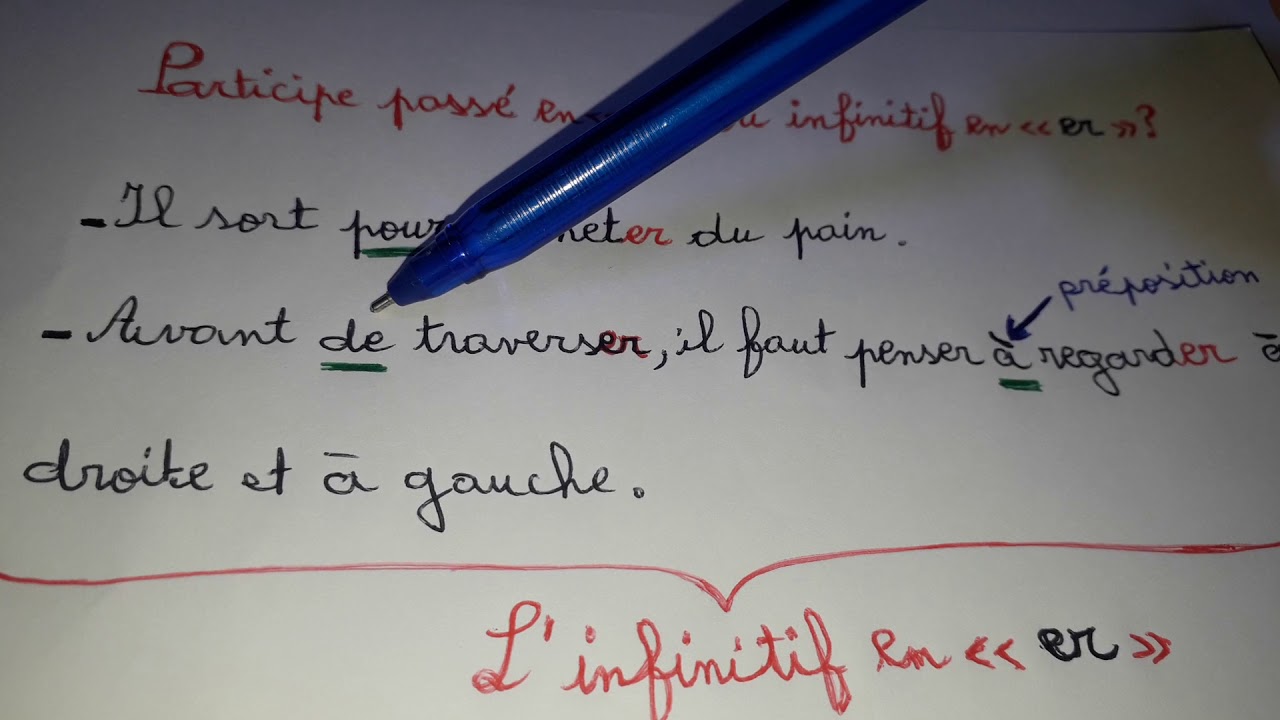 Participe passé en « infinitif en « er » ?
- Il sort pour du pain.
préposition
- Avant de traverser, il faut penser à regarder à
droite et à gauche.
L'infinitif en « er »